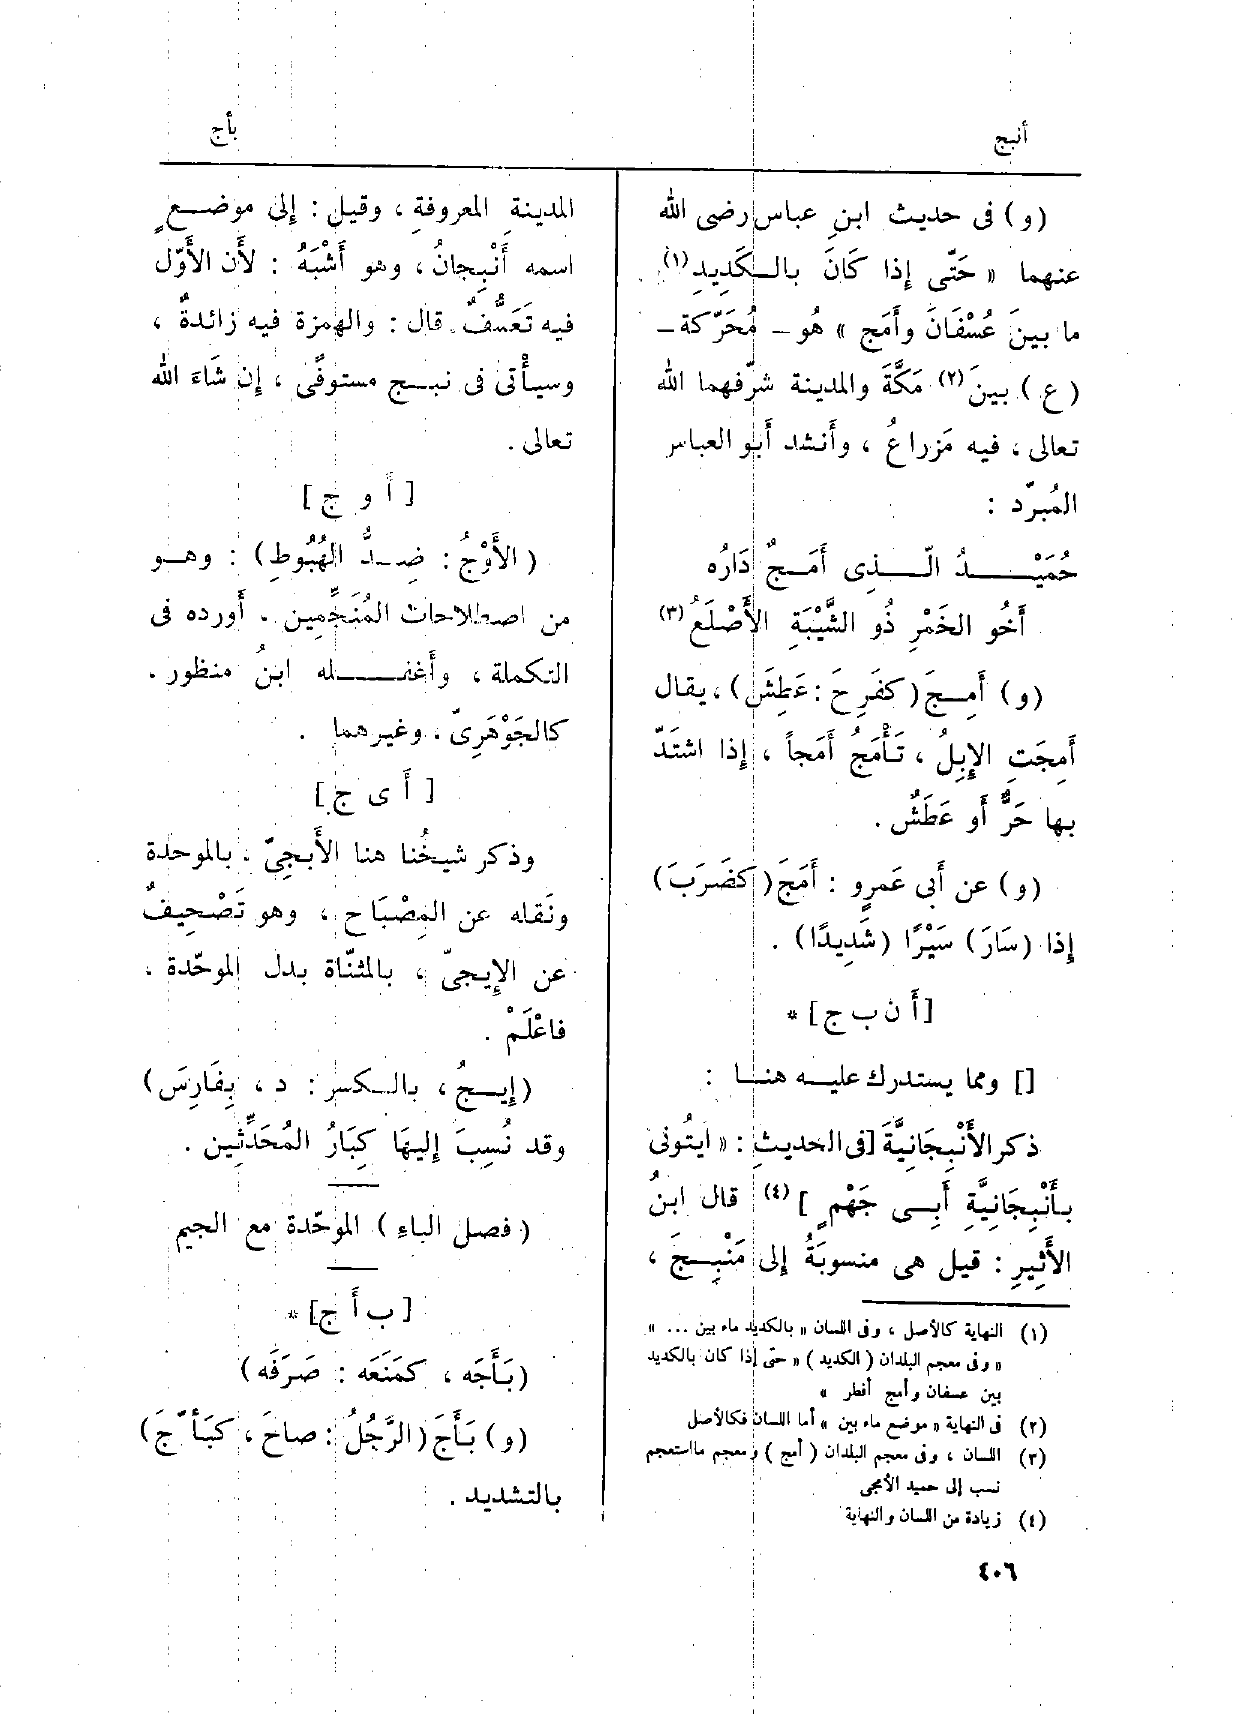 أنبج
بأج
(و) فى حديث ابنِ عباس رضى الله
عنهما « حَتَّى إذا كَانَ بالـكَدِيدِ(١)
ما بينَ عُسْفَانَ وأَمَج » هُو - مُحَرّكة -
(ع) بينَ(٢) مَكَّةَ والمدينة شرّفهما الله
تعالى ، فيه مَزراعُ ، وأَنشد أَبو العباس
المُبرّد :
حُمَيْـــدُ الَّـــذِى أَمَـجٌ دَارُه
أَخُو الخَمْرِ ذُو الشَّيْبَةِ الأَصْلَعُ(٣)
(و) أَمِـجَ (كفَرِحَ : عَطِشَ) ، يقال
أَمِجَتِ الإِبِلُ ، تَأْمَجُ أَمَجاً ، إذا اشتَدّ
بها حَرٌّ أَو عَطَشٌ .
(و) عن أَبى عَمرٍو : أَمَجَ (كضَرَبَ)
إذا (سَارَ) سَيْرًا (شَدِيدًا) .
[أ ن ب ج] *
[] ومما يستدرك عليـه هنـا :
ذكر الأَنْبِجَانِيَّةَ [فى الحديثِ : « ايتُونى
بأَنْبِجَانِيَّةِ أَبِـى جَهْمٍ ] (٤) قال ابنُ
الأَثِيرِ : قيل هى منسوبَةُ إلى مَنْبِـجَ ،
(١) النهاية كالأصل ، وفى اللسان « بالكديد ماء بين ... »
« وفى معجم البلدان ( الكديد ) « حتى إذا كان بالكديد
بين عسفان وأمج أفطر »
(٢) فى النهاية « موضع ماء بين » أما اللسان فكالأصل
(٣) اللسان ، وفى معجم البلدان ( أمج ) ومعجم ما استعجم
نسب إلى حميد الأمجى
(٤) زيادة من اللسان والنهاية
المدينةِ المعروفةِ ، وقيل : إلى موضـعٍ
اسمه أَنْبِجانُ ، وهو أَشْبَهُ : لأَن الأَوّل
فيه تَعَسُّفٌ . قال : والهمزة فيه زائدةٌ ،
وسيأْتى فى نبـج مستوفًى ، إن شاءَ الله
تعالى .
[ أ و ج ]
( الأَوْجُ : ضِـدُّ الهُبُوطِ ) : وهـو
من اصطلاحات المُنَجِّمِين . أَورده فى
التكملة ، وأَغفـــله ابنُ منظور .
كالجَوْهَرِىّ . وغيرهما .
[ أ ى ج ]
وذكر شيخُنا هنا الأَبجِىّ . بالموحدة
ونَقله عن المِصْبَاح ، وهو تَصْحِيفٌ
عن الإِيجىّ ، بالمثنّاة بدل الموحّدة ،
فاعْلَمْ .
(إِيـجُ ، بالـكسر : د ، بِفَارِسَ)
وقد نُسِبَ إليهَا كِبَارُ المُحَدِّثين .
( فصل الباءِ ) الموحّدة مع الجيم
[ب أ ج] *
(بَأَجَه ، كمَنَعَه : صَرَفَه)
(و) بَأَجَ (الرَّجُلُ : صاحَ ، كبَأَّجَ)
بالتشديد .
٤٠٦